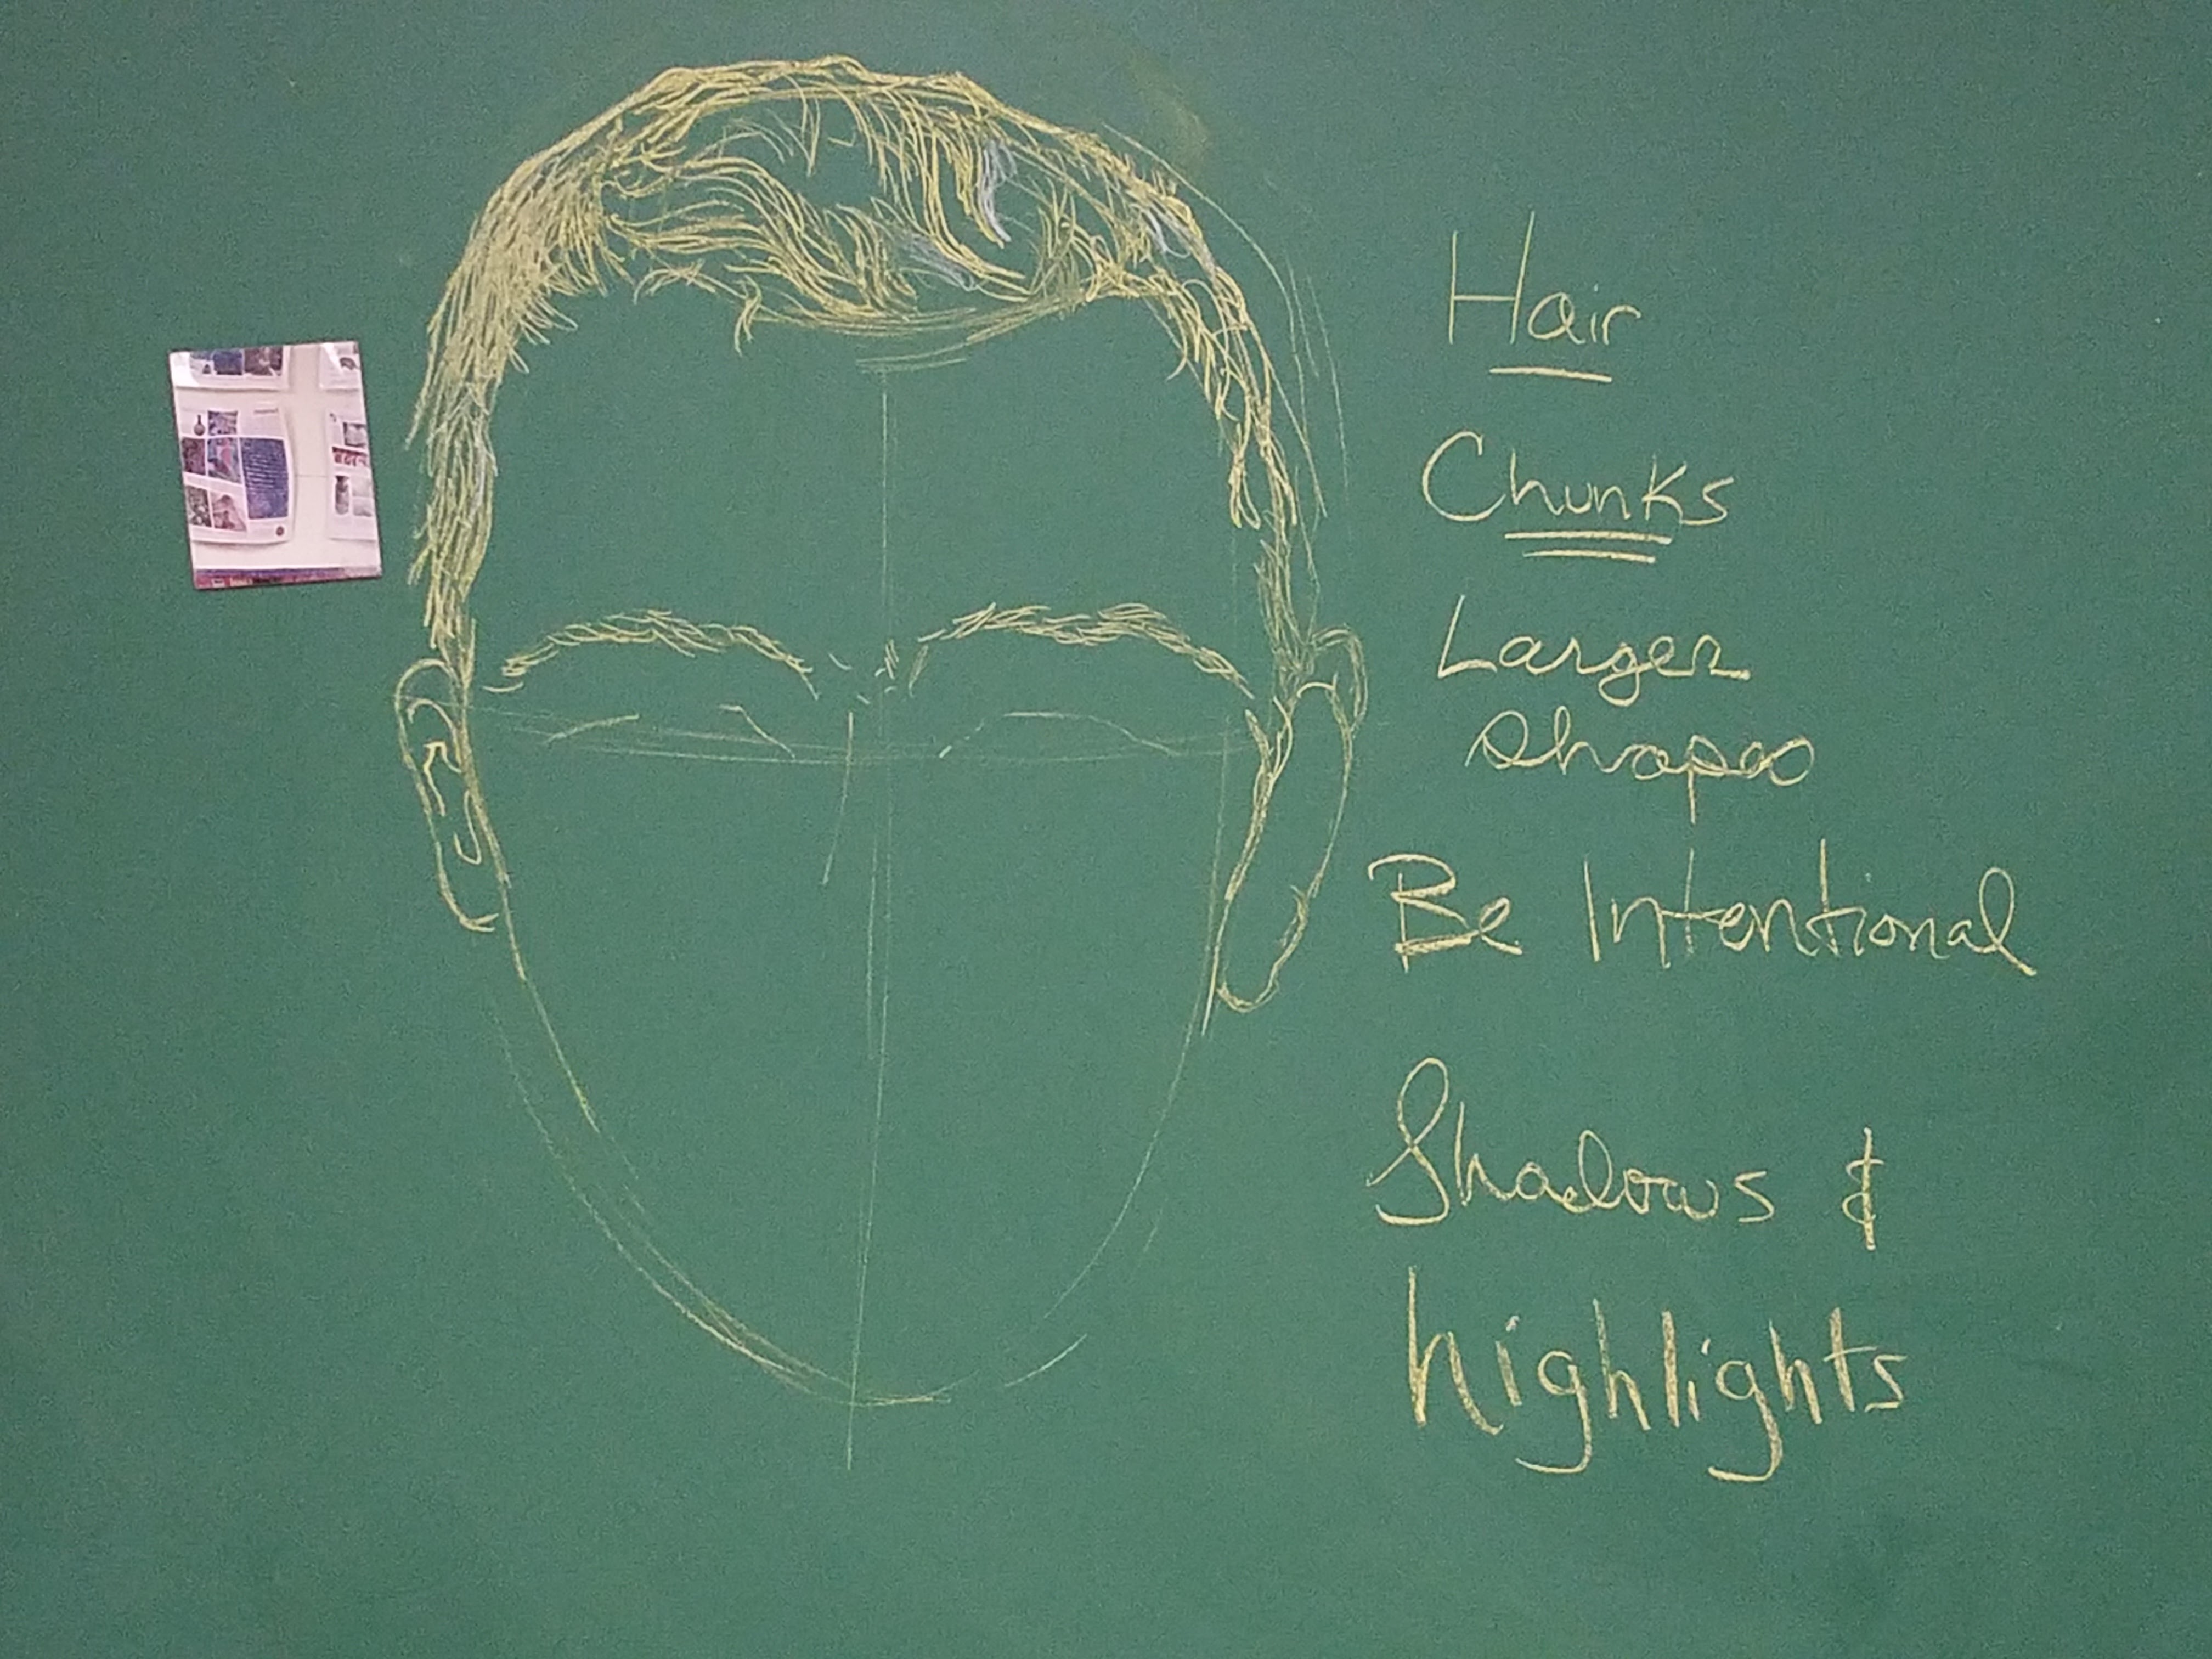 Hair
Chunks
Larger
shapes
Be Intentional
Shadows &
highlights